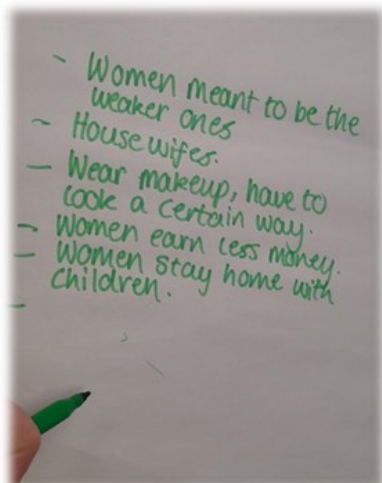 - Women meant to be the
weaker ones
- House wifes.
- Wear makeup, have to
look a certain way.
- Women earn less money.
- Women stay home with
children.
-